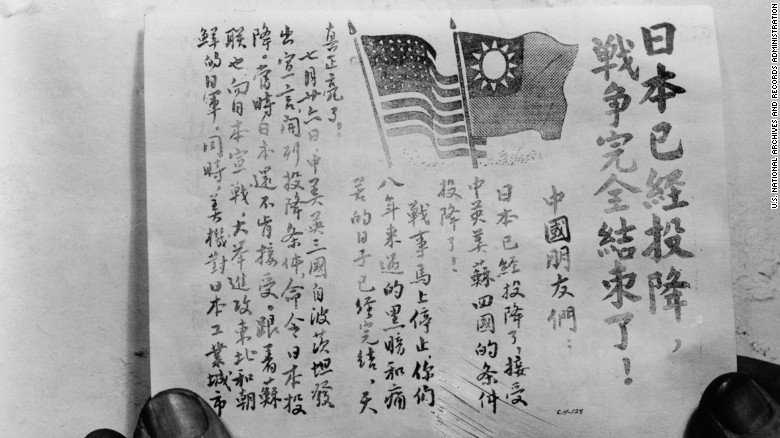 日本已經投降，
戦争完全結束了！
中國朋友們：
日本已經投降了，接受
中英美蘇四國的条件
投降了！
戰事馬上停止，你們
八年來過的黑暗和痛
苦的日子已經完結，天
真正亮了！
七月廿六日，中美英三國自波茨坦發
出宣言，開列投降条件，命令日本投
降。當時，日本還不肯接受。跟着蘇
联也向日本宣战，大举進攻東北和朝
鮮的日軍，同時，美機對日本工業城市
CH-129
U.S. NATIONAL ARCHIVES AND RECORDS ADMINISTRATION